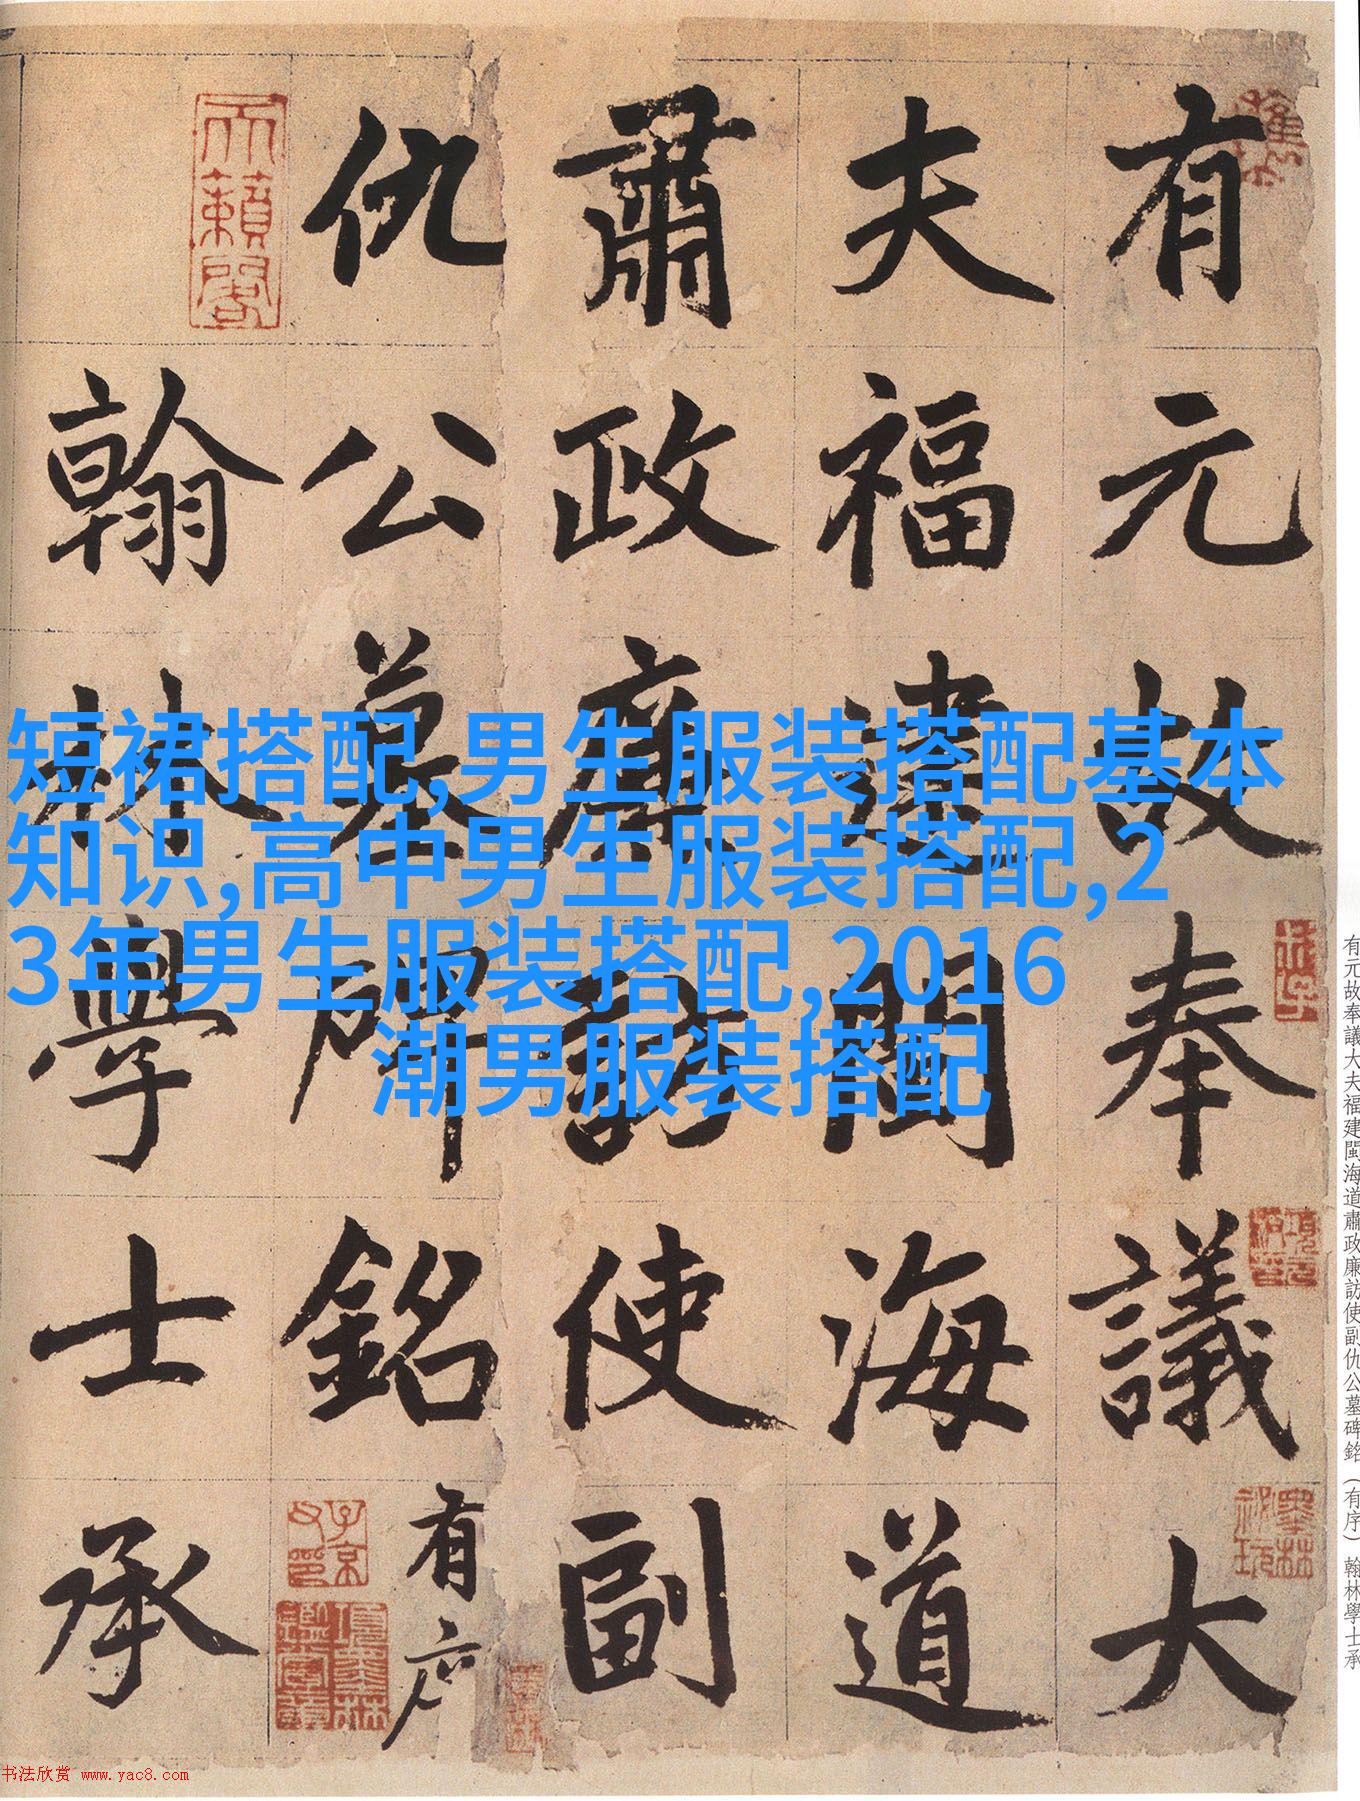 有元故奉議大
夫福建閩海道
肅政廉訪使副
仇公墓碑銘有序
翰林學士承
天籟閣
子京父印
項墨林鑑賞章
墨林祕玩
項元汴印
短裙搭配,男生服装搭配基本
知识,高中男生服装搭配,2
3年男生服装搭配,2016
潮男服装搭配
有元故奉議大夫福建閩海道肅政廉訪使副仇公墓碑銘（有序）翰林學士承
书法欣赏 www.yac8.com